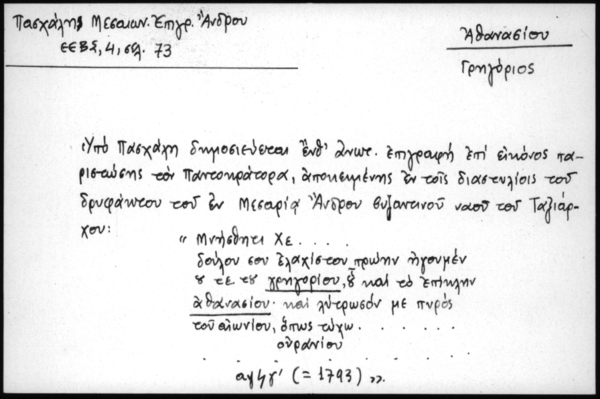 Πασχάλης Μεσαιων. Ἐπιγρ. Ἄνδρου
ΕΕΒΣ, 4, σελ. 73
Ἀθανασίου
Γρηγόριος
Ὑπὸ Πασχάλη δημοσιεύεται ἔνθ' ἀνωτ. ἐπιγραφὴ ἐπὶ εἰκόνος πα-
ριστώσης τὸν Παντοκράτορα, ἀποκειμένης ἐν τοῖς διαστυλίοις τοῦ
δρυφάκτου τοῦ ἐν Μεσαριᾷ Ἄνδρου βυζαντινοῦ ναοῦ τοῦ Ταξιάρ-
χου:
" Μνήσθητι Χε . . . .
δούλου σου ἐλαχίστου πρώην ἡγουμέν
ȣ τε τȣ γρηγορίου, ȣ καὶ τὸ ἐπίκλην
ἀθανασίου· καὶ λύτρωσόν με πυρὸς
τοῦ αἰωνίου, ὅπως τύχω . . . . . . .
. . . . . οὐρανίου . . . . . . .
αψϟγ' (= 1793) ».